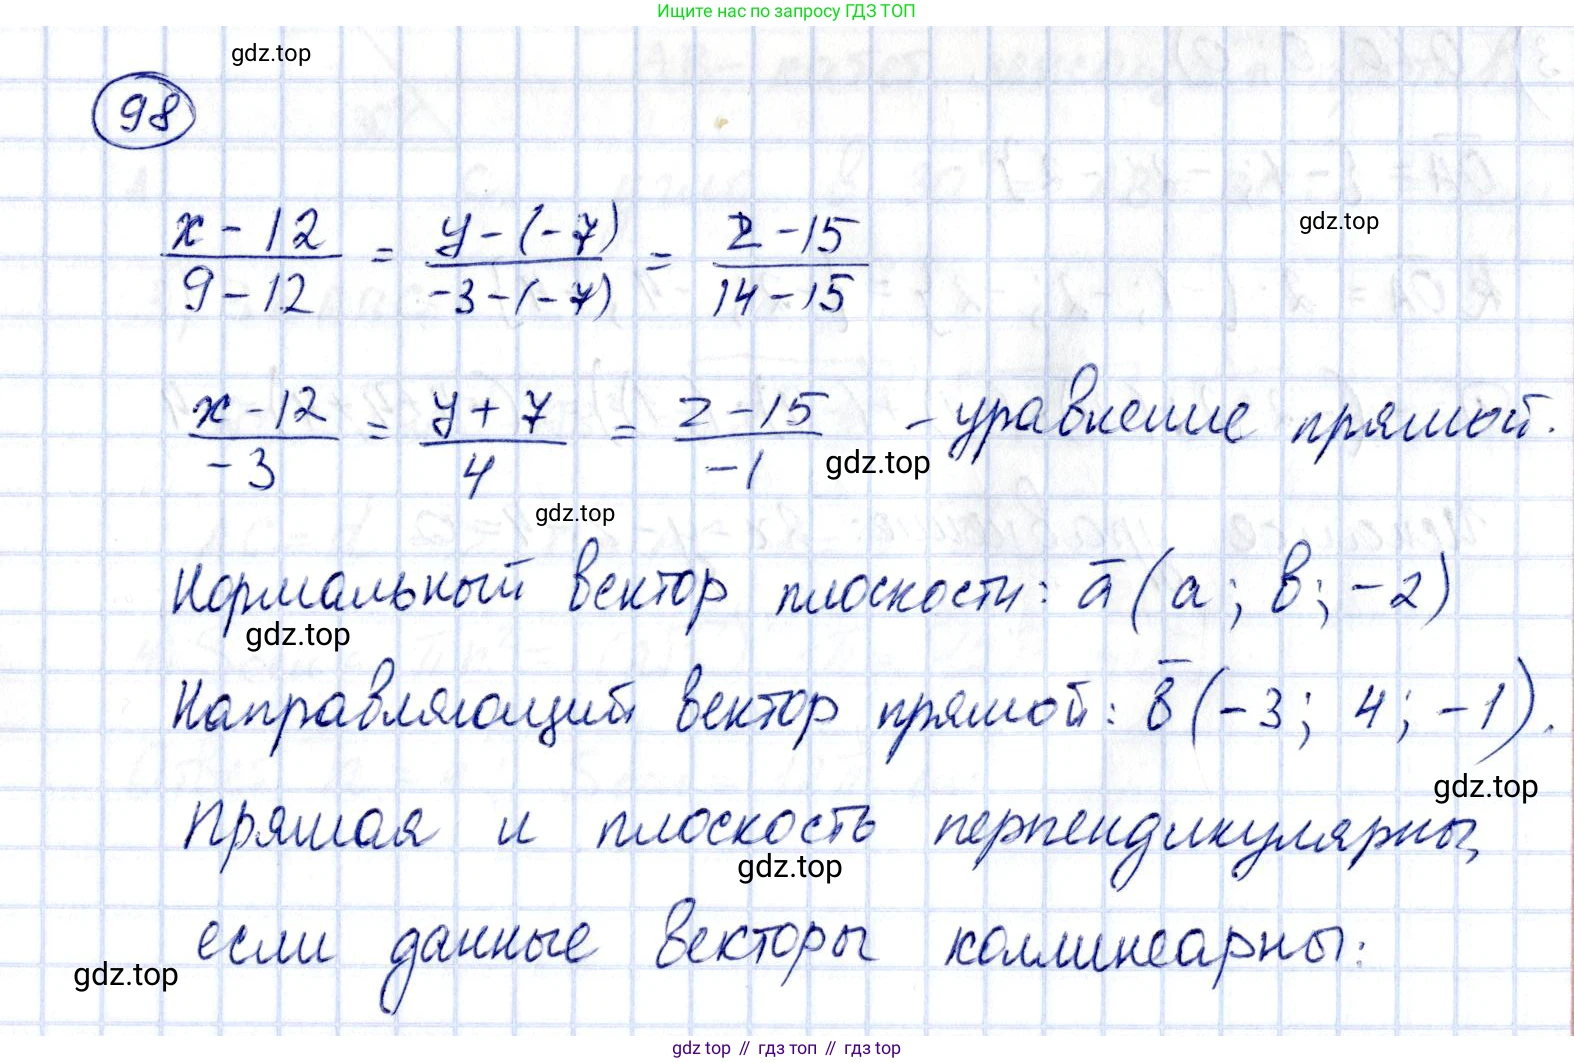 Ищите нас по запросу ГДЗ ТОП
gdz.top
98
gdz.top
x - 12 / 9 - 12 = y - (-7) / -3 - (-7) = z - 15 / 14 - 15
x - 12 / -3 = y + 7 / 4 = z - 15 / -1 - уравнение прямой.
gdz.top
gdz.top
Нормальный вектор плоскости: a̅ (a; b; -2)
gdz.top
Направляющий вектор прямой: b̅ (-3; 4; -1).
gdz.top
Прямая и плоскость перпендикулярны,
gdz.top
если данные векторы коллинеарны:
gdz.top
gdz top // гдз топ // гдз top